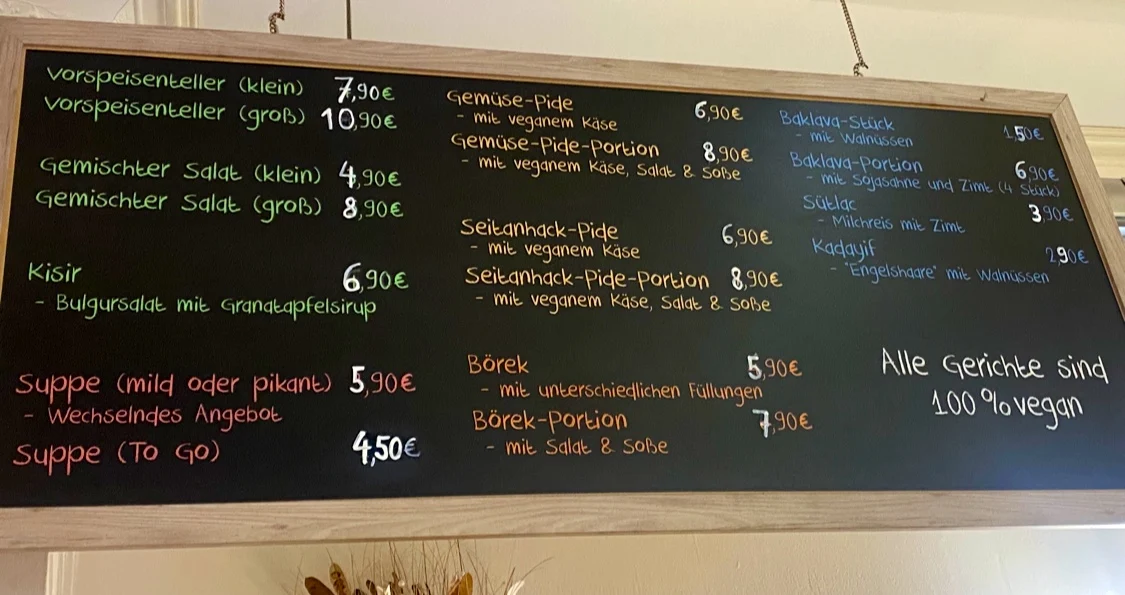 Vorspeisenteller (klein) 7,90€
Vorspeisenteller (groß) 10,90€
Gemischter Salat (klein) 4,90€
Gemischter Salat (groß) 8,90€
Kisir 6,90€
- Bulgursalat mit Granatapfelsirup
Suppe (mild oder pikant) 5,90€
- Wechselndes Angebot
Suppe (To Go) 4,50€
Gemüse-Pide 6,90€
- mit veganem Käse
Gemüse-Pide-Portion 8,90€
- mit veganem Käse, Salat & Soße
Seitanhack-Pide 6,90€
- mit veganem Käse
Seitanhack-Pide-Portion 8,90€
- mit veganem Käse, Salat & Soße
Börek 5,90€
- mit unterschiedlichen Füllungen
Börek-Portion 7,90€
- mit Salat & Soße
Baklava-Stück 1,50€
- mit Walnüssen
Baklava-Portion 6,90€
- mit Sojasahne und Zimt (4 Stück)
Sütlac 3,90€
- Milchreis mit Zimt
Kadayif 2,90€
- "Engelshaare" mit Walnüssen
Alle Gerichte sind
100% vegan